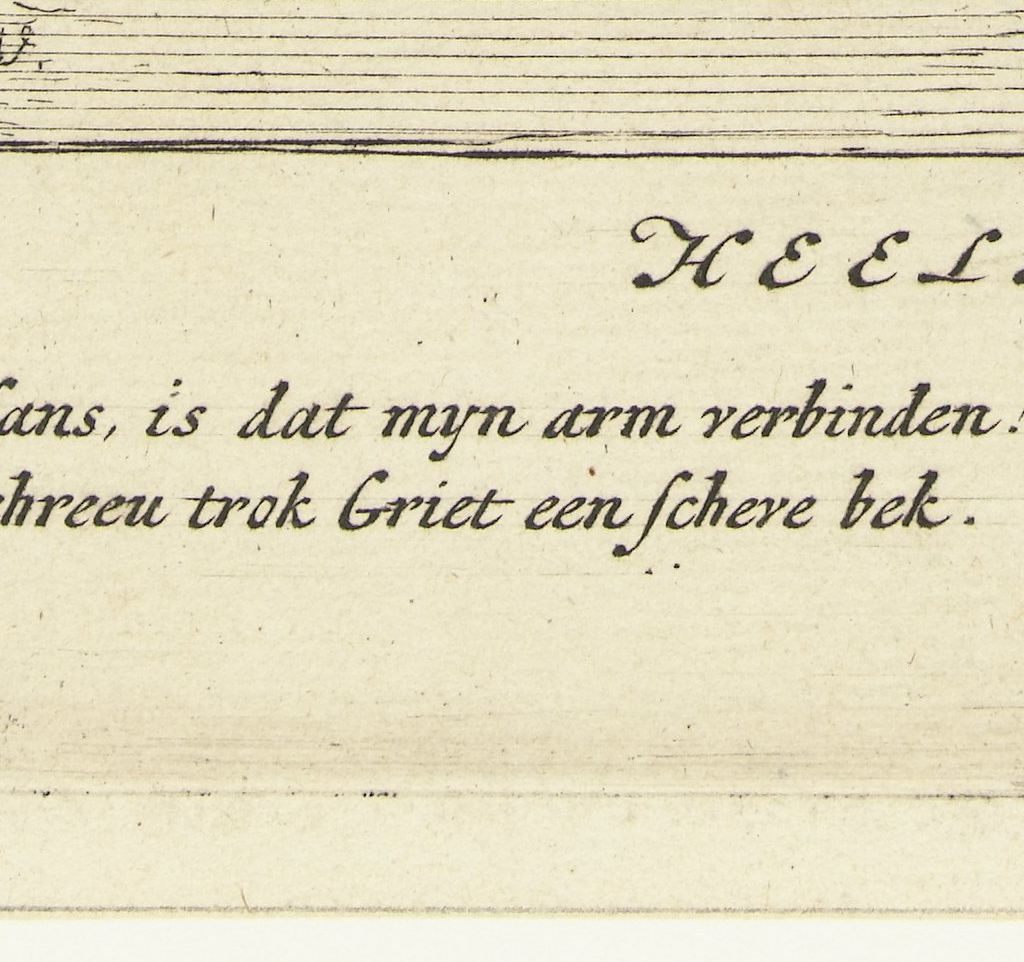 HEEL
ans, is dat myn arm verbinden!
chreeu trok Griet een ſcheve bek.